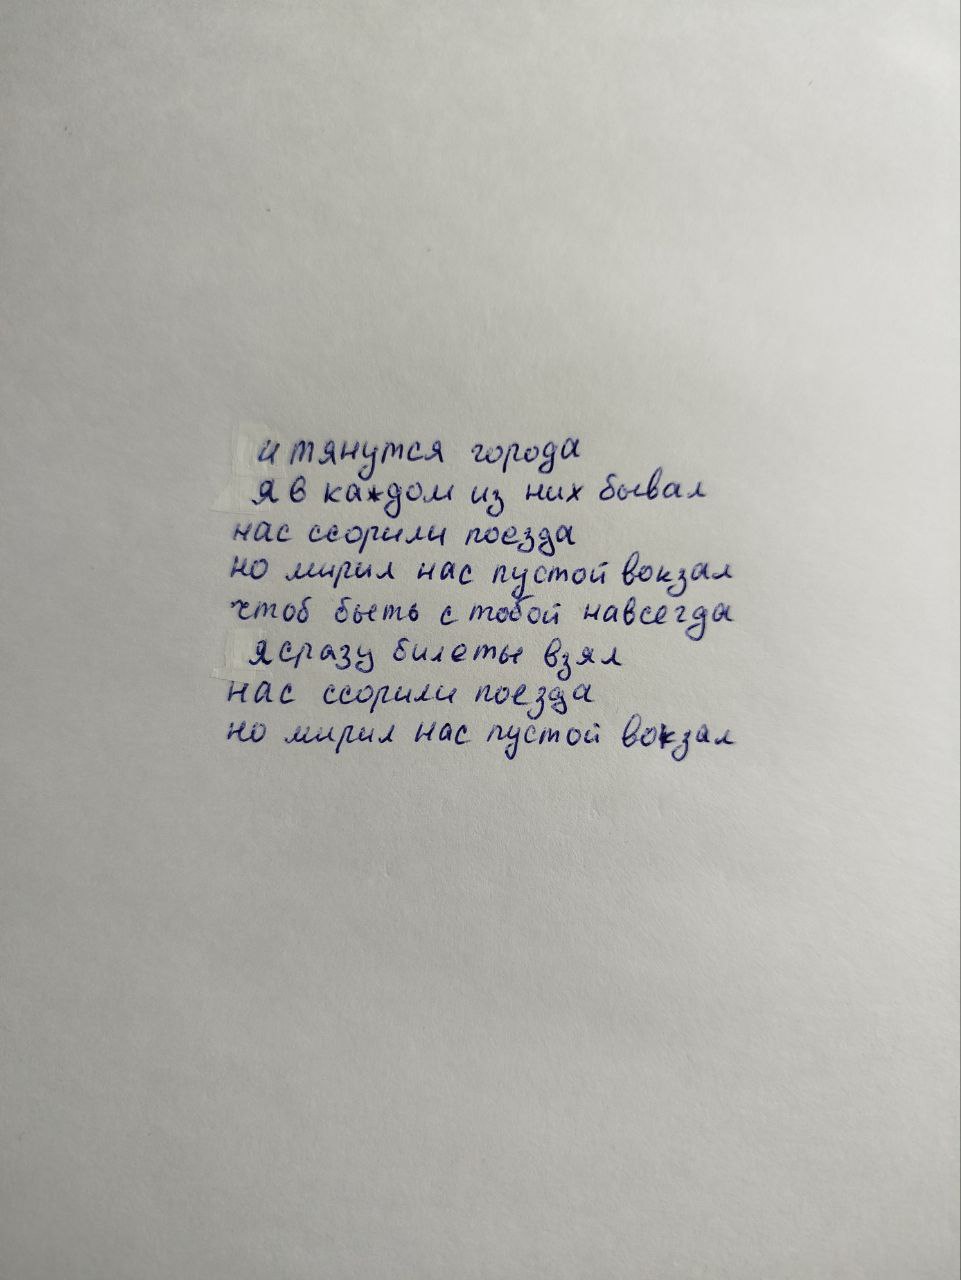 и тянутся города
я в каждом из них бывал
нас ссорили поезда
но мирил нас пустой вокзал
чтоб быть с тобой навсегда
я сразу билеты взял
нас ссорили поезда
но мирил нас пустой вокзал